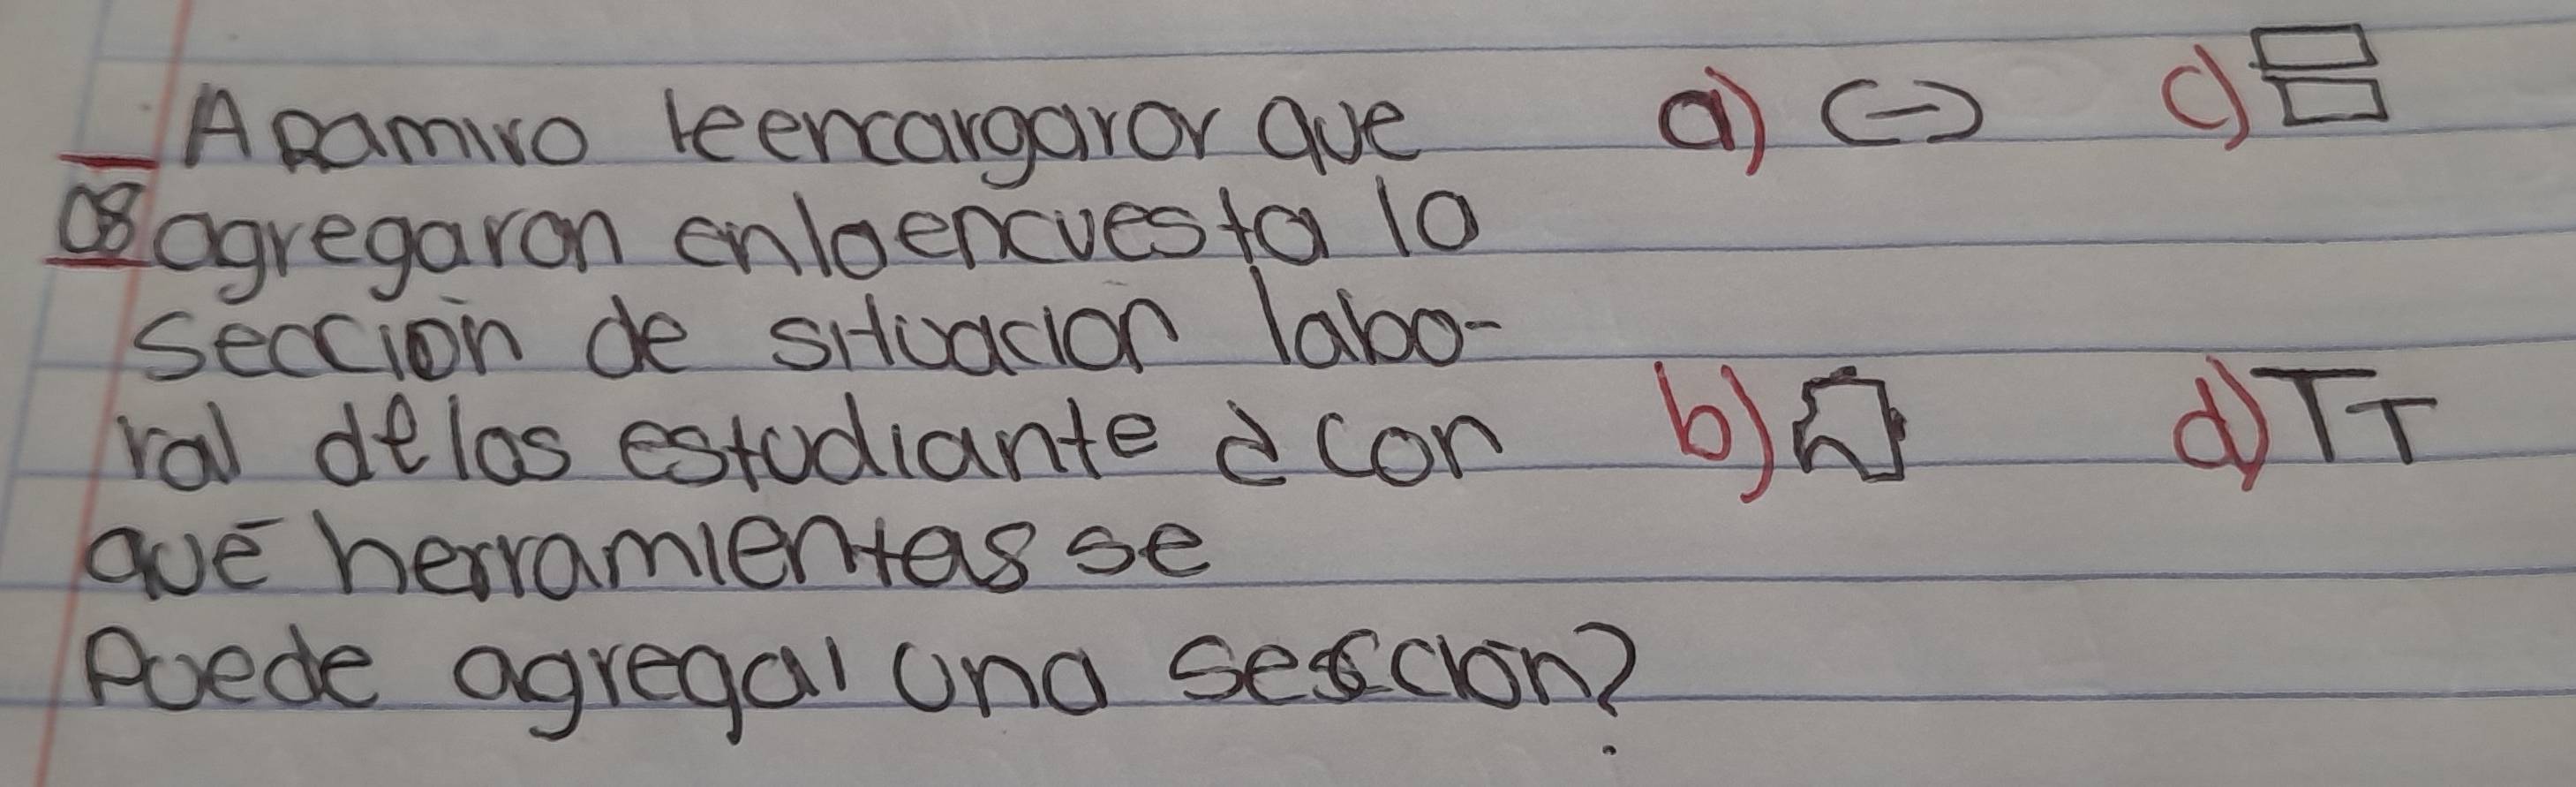 A Ramiro leencargaron que
08 agregaran enlaencuesta la
sección de situacion labo-
ral de los estudiante ¿con
qué herramientas se
Puede agregar una sescción?
a) (-)
b)
c)
d) TT